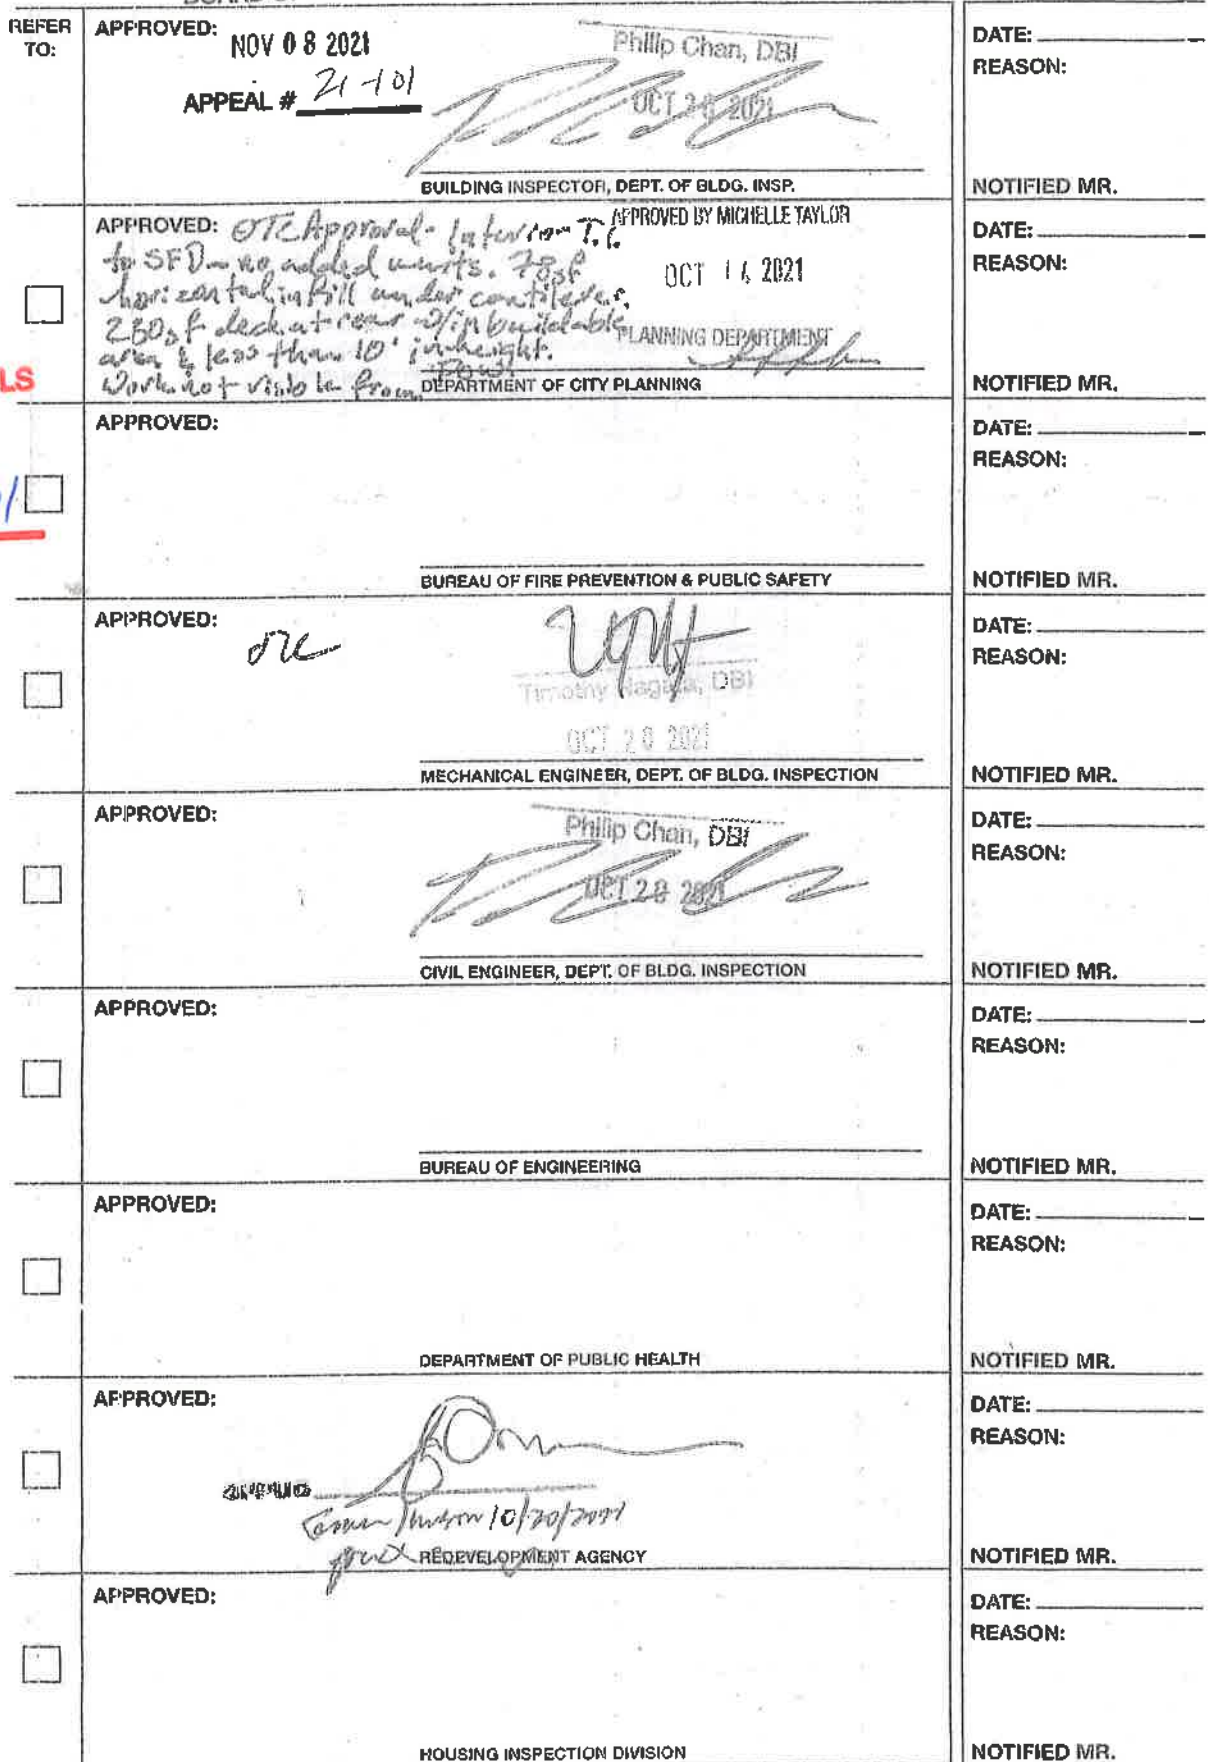 REFER
TO:
APPROVED:
NOV 08 2021
APPEAL # 21-101
Philip Chan, DBI
OCT 28 2021
BUILDING INSPECTOR, DEPT. OF BLDG. INSP.
DATE:
REASON:
NOTIFIED MR.
APPROVED: OTC Approval - Interior T.I.
to SFD - no added units. 78sf
horizontal infill under cantilever,
280sf deck at rear w/in buildable
area & less than 10' in height.
Work not visible from
APPROVED BY MICHELLE TAYLOR
OCT 14 2021
PLANNING DEPARTMENT
DEPARTMENT OF CITY PLANNING
DATE:
REASON:
NOTIFIED MR.
LS
APPROVED:
BUREAU OF FIRE PREVENTION & PUBLIC SAFETY
DATE:
REASON:
NOTIFIED MR.
APPROVED:
Timothy Nagata, DBI
OCT 28 2021
MECHANICAL ENGINEER, DEPT. OF BLDG. INSPECTION
DATE:
REASON:
NOTIFIED MR.
APPROVED:
Philip Chan, DBI
OCT 28 2021
CIVIL ENGINEER, DEPT. OF BLDG. INSPECTION
DATE:
REASON:
NOTIFIED MR.
APPROVED:
BUREAU OF ENGINEERING
DATE:
REASON:
NOTIFIED MR.
APPROVED:
DEPARTMENT OF PUBLIC HEALTH
DATE:
REASON:
NOTIFIED MR.
APPROVED:
10/20/2021
REDEVELOPMENT AGENCY
DATE:
REASON:
NOTIFIED MR.
APPROVED:
HOUSING INSPECTION DIVISION
DATE:
REASON:
NOTIFIED MR.